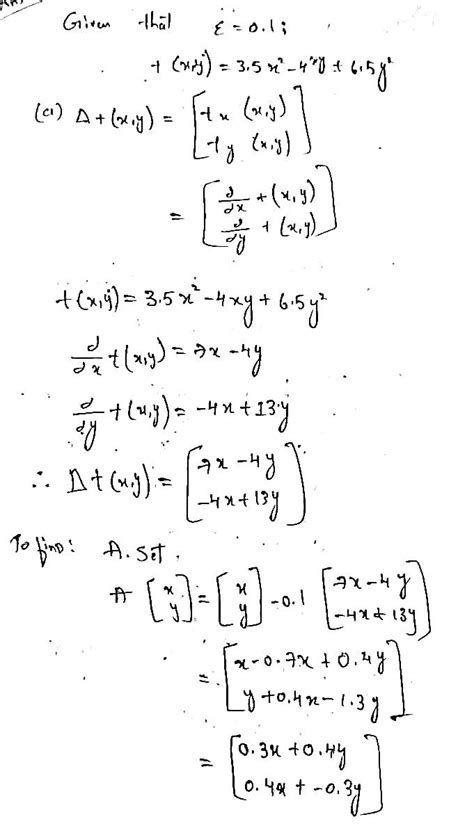 Given that ε = 0.1;
t(x,y) = 3.5x² - 4xy + 6.5y²
(a) Δt(x,y) = [tx (x,y)
ty (x,y)]
= [∂/∂x t(x,y)
∂/∂y t(x,y)]
t(x,y) = 3.5x² - 4xy + 6.5y²
∂/∂x t(x,y) = 7x - 4y
∂/∂y t(x,y) = -4x + 13y
∴ Δt(x,y) = [7x - 4y
-4x + 13y]
To find: A. Set.
A [x y] = [x y] - 0.1 [7x - 4y
-4x + 13y]
= [x - 0.7x + 0.4y
y + 0.4x - 1.3y]
= [0.3x + 0.4y
0.4x + -0.3y]